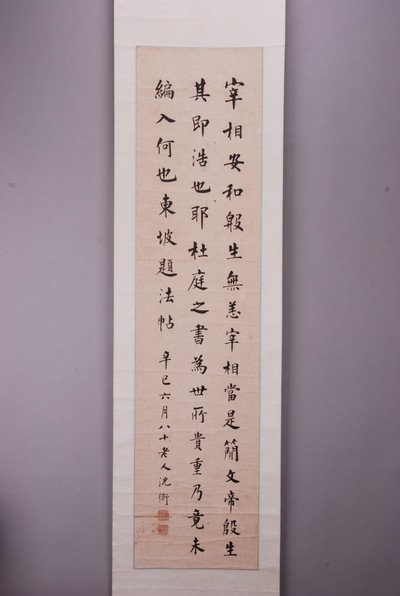 宰相安和殷生無恙宰相當是簡文帝殷生
其即浩也耶杜庭之書為世所貴重乃竟未
編入何也東坡題法帖 辛巳六月八十老人沈衛